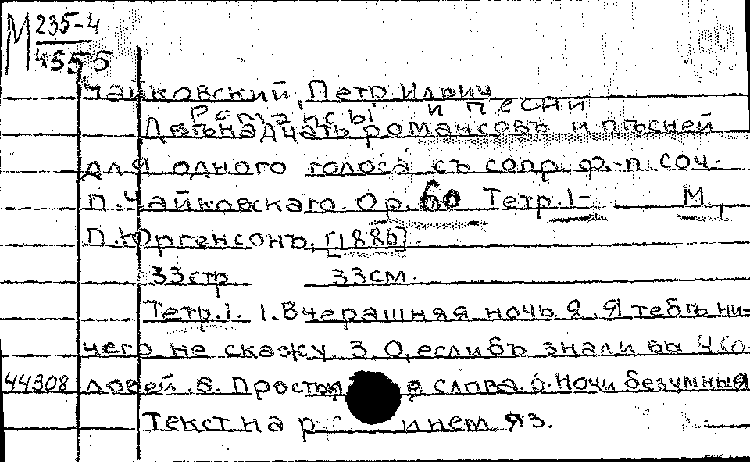 М 235-4
4555
Чайковский, Петр Ильич
Романсы и песни
Двѣнадцать романсовъ и пѣсней
для одного голоса съ сопр. ф.-п. соч.
П. Чайковскаго. Ор. 60 Тетр. 1- М.,
П. Юргенсонъ, [1886].
33стр. 33см.
Тетр. 1. 1. Вчерашняя ночь. 2. Я тебѣ ни-
чего не скажу. 3. О, еслибъ знали вы. 4 Со-
44308 ловей. 5. Простыя слова. 6. Ночи безумныя
Текст на р и нем яз.